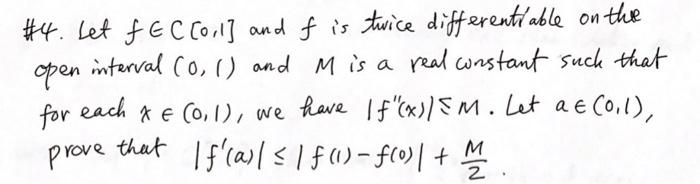 #4. Let f ∈ C[0,1] and f is twice differentiable on the
open interval (0,1) and M is a real constant such that
for each x ∈ (0,1), we have |f"(x)| ≤ M. Let a ∈ (0,1),
prove that |f'(a)| ≤ |f(1)-f(0)| + M/2.